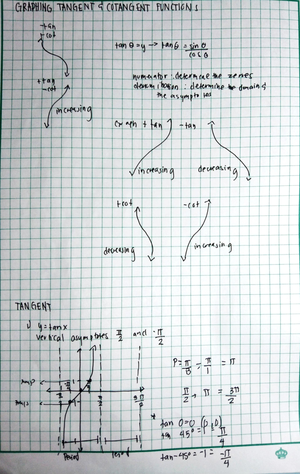 GRAPHING TANGENT & COTANGENT FUNCTIONS
+tan
-cot
tan θ = y → tan θ = sin θ
cos θ
numerator: determine the zeroes
denominator: determine the domain &
the asymptotes
+tan
-cot
increasing
+tan
-tan
increasing
decreasing
+cot
-cot
decreasing
increasing
TANGENT
y = tan x
vertical asymptotes π/2 and -π/2
P = π/B = π/1 = π
π/2, π = 3π/2
tan 0 = 0
tan 45° =
π/4
tan -45° = -1 = -π/4
Period